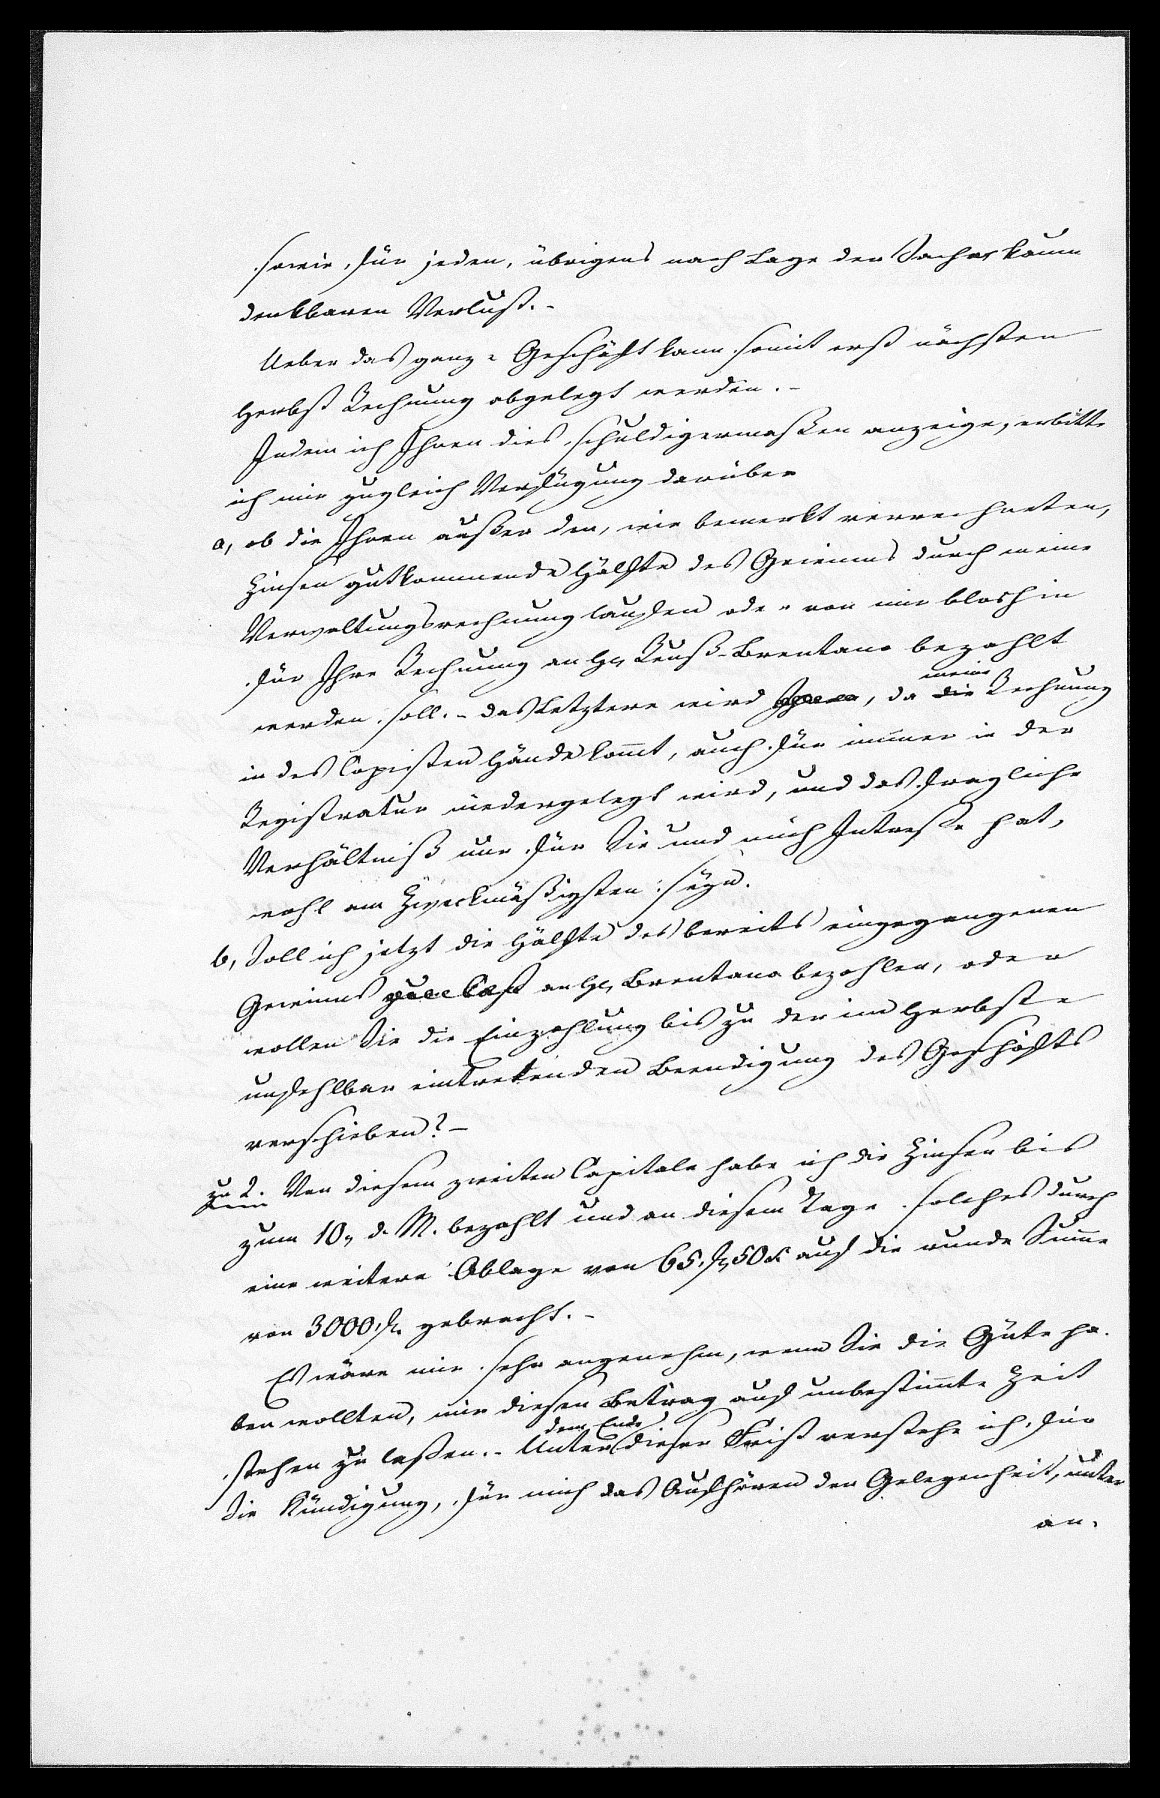 sowie für jeden, übrigens nach Lage der Sache kaum
denkbaren Verlust.-
Ueber das ganze Geschäft kann somit erst nächsten
Herbst Rechnung abgelegt werden.-
Indem ich Ihnen dies schuldigermaßen anzeige, erbitte
ich mir zugleich Verfügung darüber
a, ob die Ihnen außer den, wie bemerkt verrechneten,
Zinsen gutkommende Hälfte des Gewinns durch meine
Verwaltungsrechnung laufen oder von mir bloshin
für Ihre Rechnung an H. Reuß-Brentano bezahlt
werden soll.- das Letztere wird, da die meine Rechnung
in des Copisten Hände komt, auch für immer in der
Registratur niedergelegt wird, und das fragliche
Verhältniß nur für Sie und mich Intresse hat,
wohl am Zweckmäßigsten seyn.
b, Soll ich jetzt die Hälfte des bereits eingegangenen
Gewinns an H. Brentano bezahlen, oder
wollen Sie die Einzahlung bis zu der im Herbste
unfehlbar eintretenden Beendigung des Geschäfts
verschieben?-
zu 2. Von diesem zweiten Capitale habe ich die Zinsen bis
zum 10. d. M. bezahlt und an diesem Tage solches durch
eine weitere Ablage von 65 f 50 x auf die runde Summe
von 3000 f. gebracht.-
Es wäre mir sehr angenehm, wenn Sie die Güte ha-
ben wollten, mir diesen Betrag auf unbestimte Zeit
stehen zu lassen.- Unter dem Ende dieser Frist verstehe ich für
Sie Kündigung, für mich das Aufhören der Gelegenheit, unter
an-